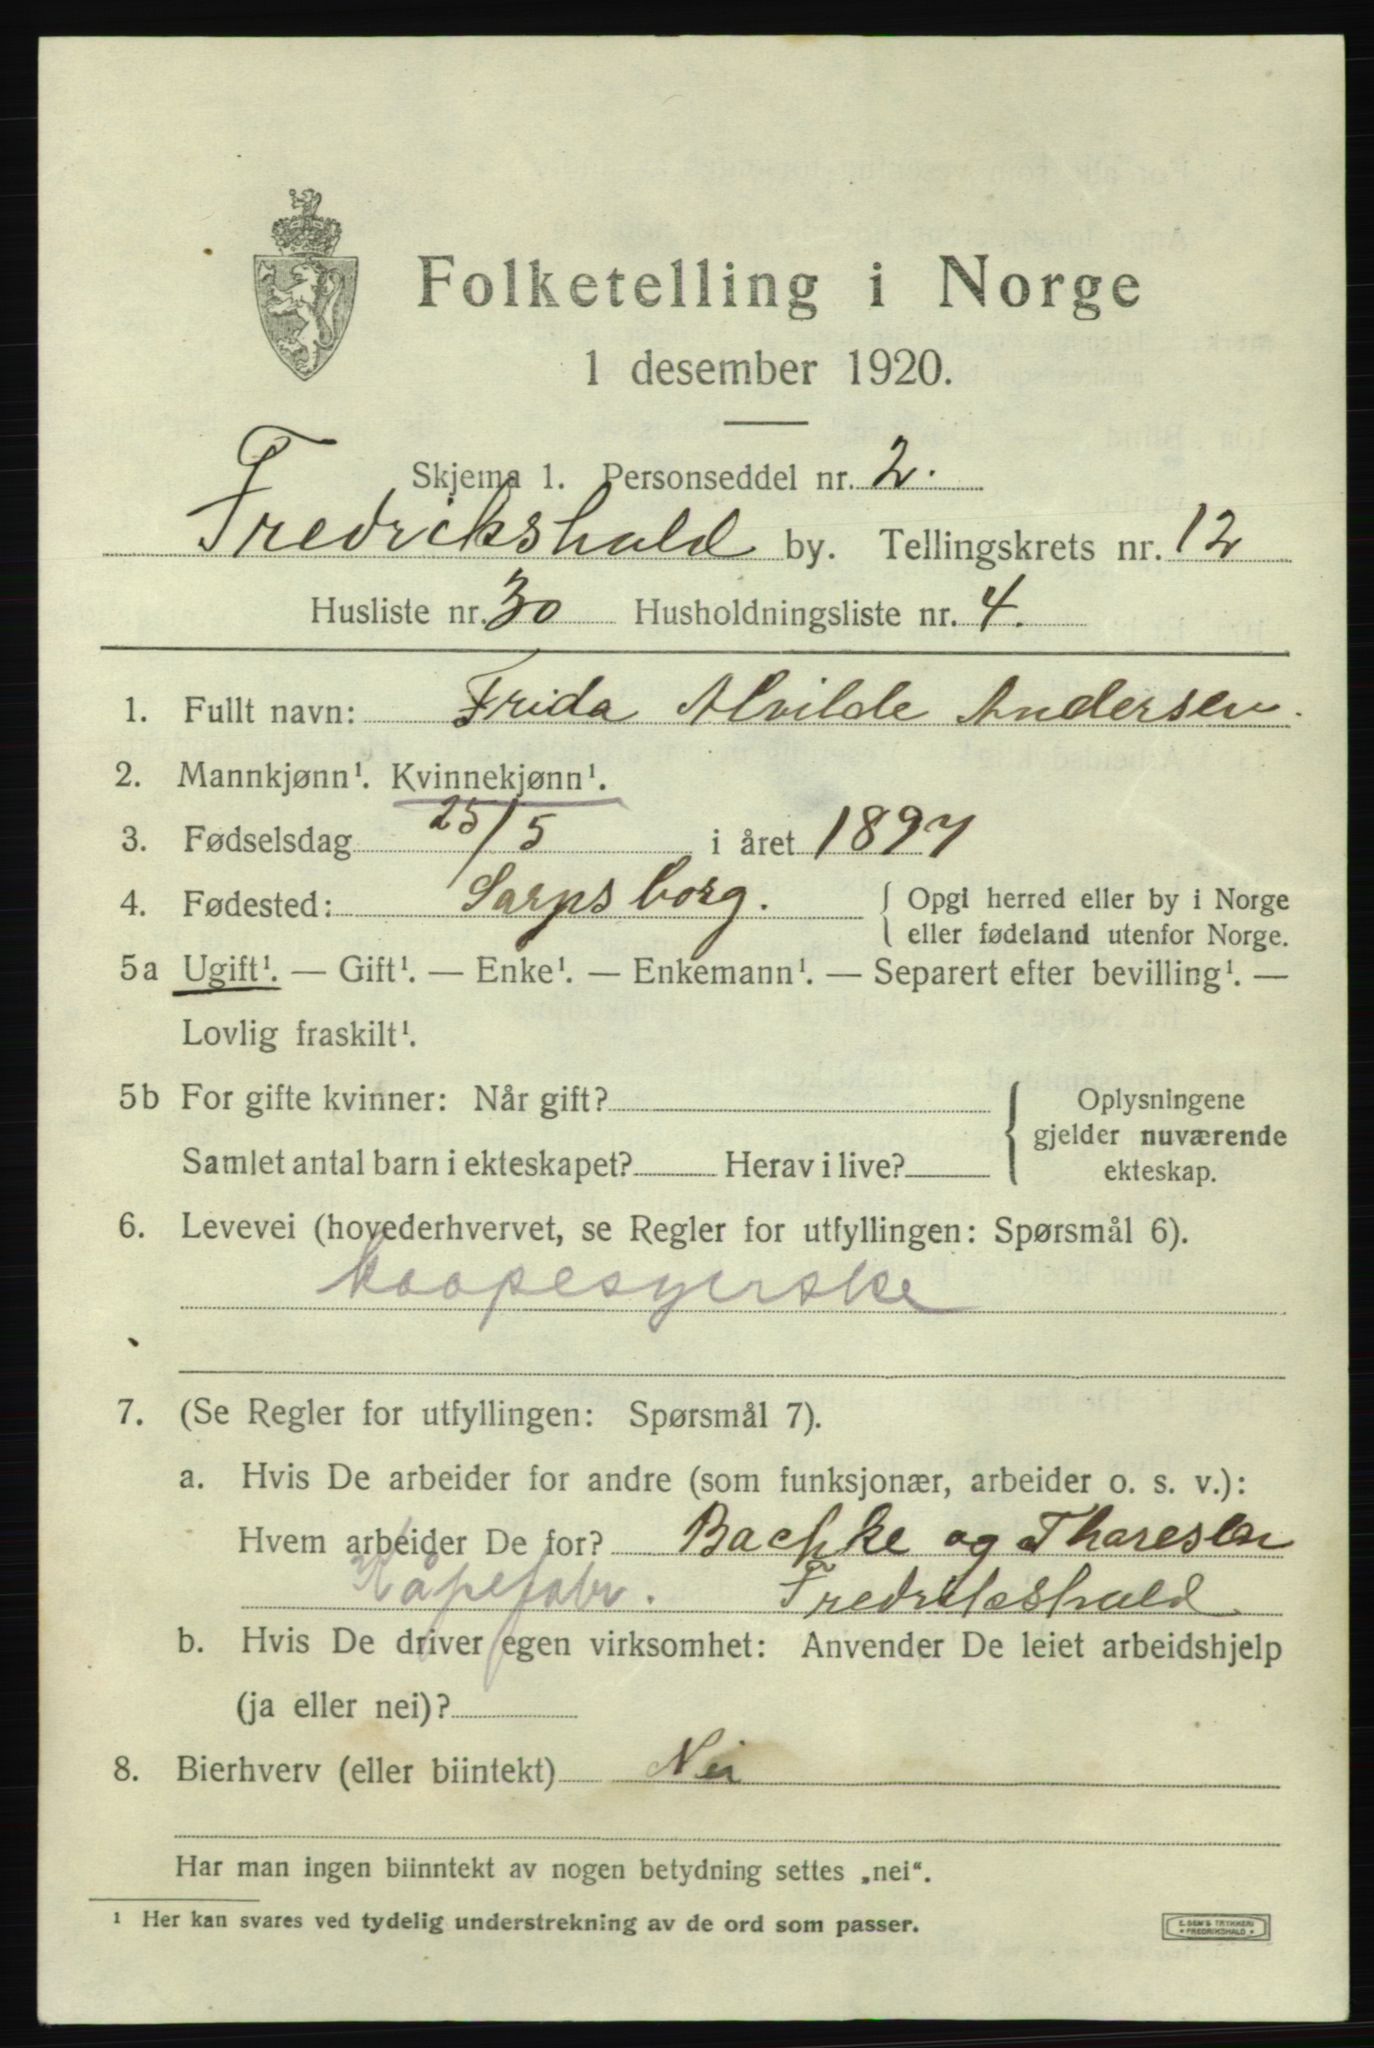 Folketelling i Norge
1 desember 1920.
Skjema 1. Personseddel nr. 2.
Fredrikshald by. Tellingskrets nr. 12
Husliste nr. 30 Husholdningsliste nr. 4.
1. Fullt navn: Frida Alvilde Andersen.
2. Mannkjønn¹. Kvinnekjønn¹.
3. Fødselsdag 25/5 i året 1897
4. Fødested: Sarpsborg. { Opgi herred eller by i Norge
eller fødeland utenfor Norge.
5a Ugift¹. — Gift¹. — Enke¹. — Enkemann¹. — Separert efter bevilling¹. —
Lovlig fraskilt¹.
5b For gifte kvinner: Når gift? { Oplysningene
gjelder nuværende
Samlet antal barn i ekteskapet? Herav i live?
ekteskap.
6. Levevei (hovederhvervet, se Regler for utfyllingen: Spørsmål 6).
kaapesyerske
7. (Se Regler for utfyllingen: Spørsmål 7).
a. Hvis De arbeider for andre (som funksjonær, arbeider o. s. v.):
Hvem arbeider De for? Bachke og Thoresen
Kåpefabr. Fredrikshald
b. Hvis De driver egen virksomhet: Anvender De leiet arbeidshjelp
(ja eller nei)?
8. Bierhverv (eller biintekt) Nei
Har man ingen biinntekt av nogen betydning settes „nei“.
¹ Her kan svares ved tydelig understrekning av de ord som passer.
E. SEM'S TRYKKERI
• FREDRIKSHALD •